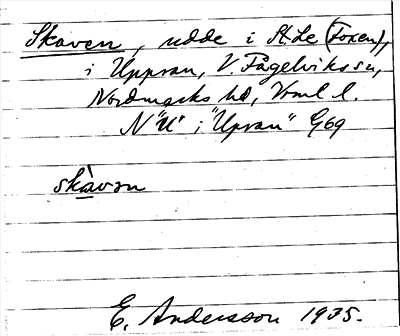 Skaven, udde i St. Le (Foxen),
i Uppran, V. Fågelviks sn,
Nordmarks hd, Vrml l.
N "U" i "Upran" G69
skàvǝn
E. Andersson 1935.